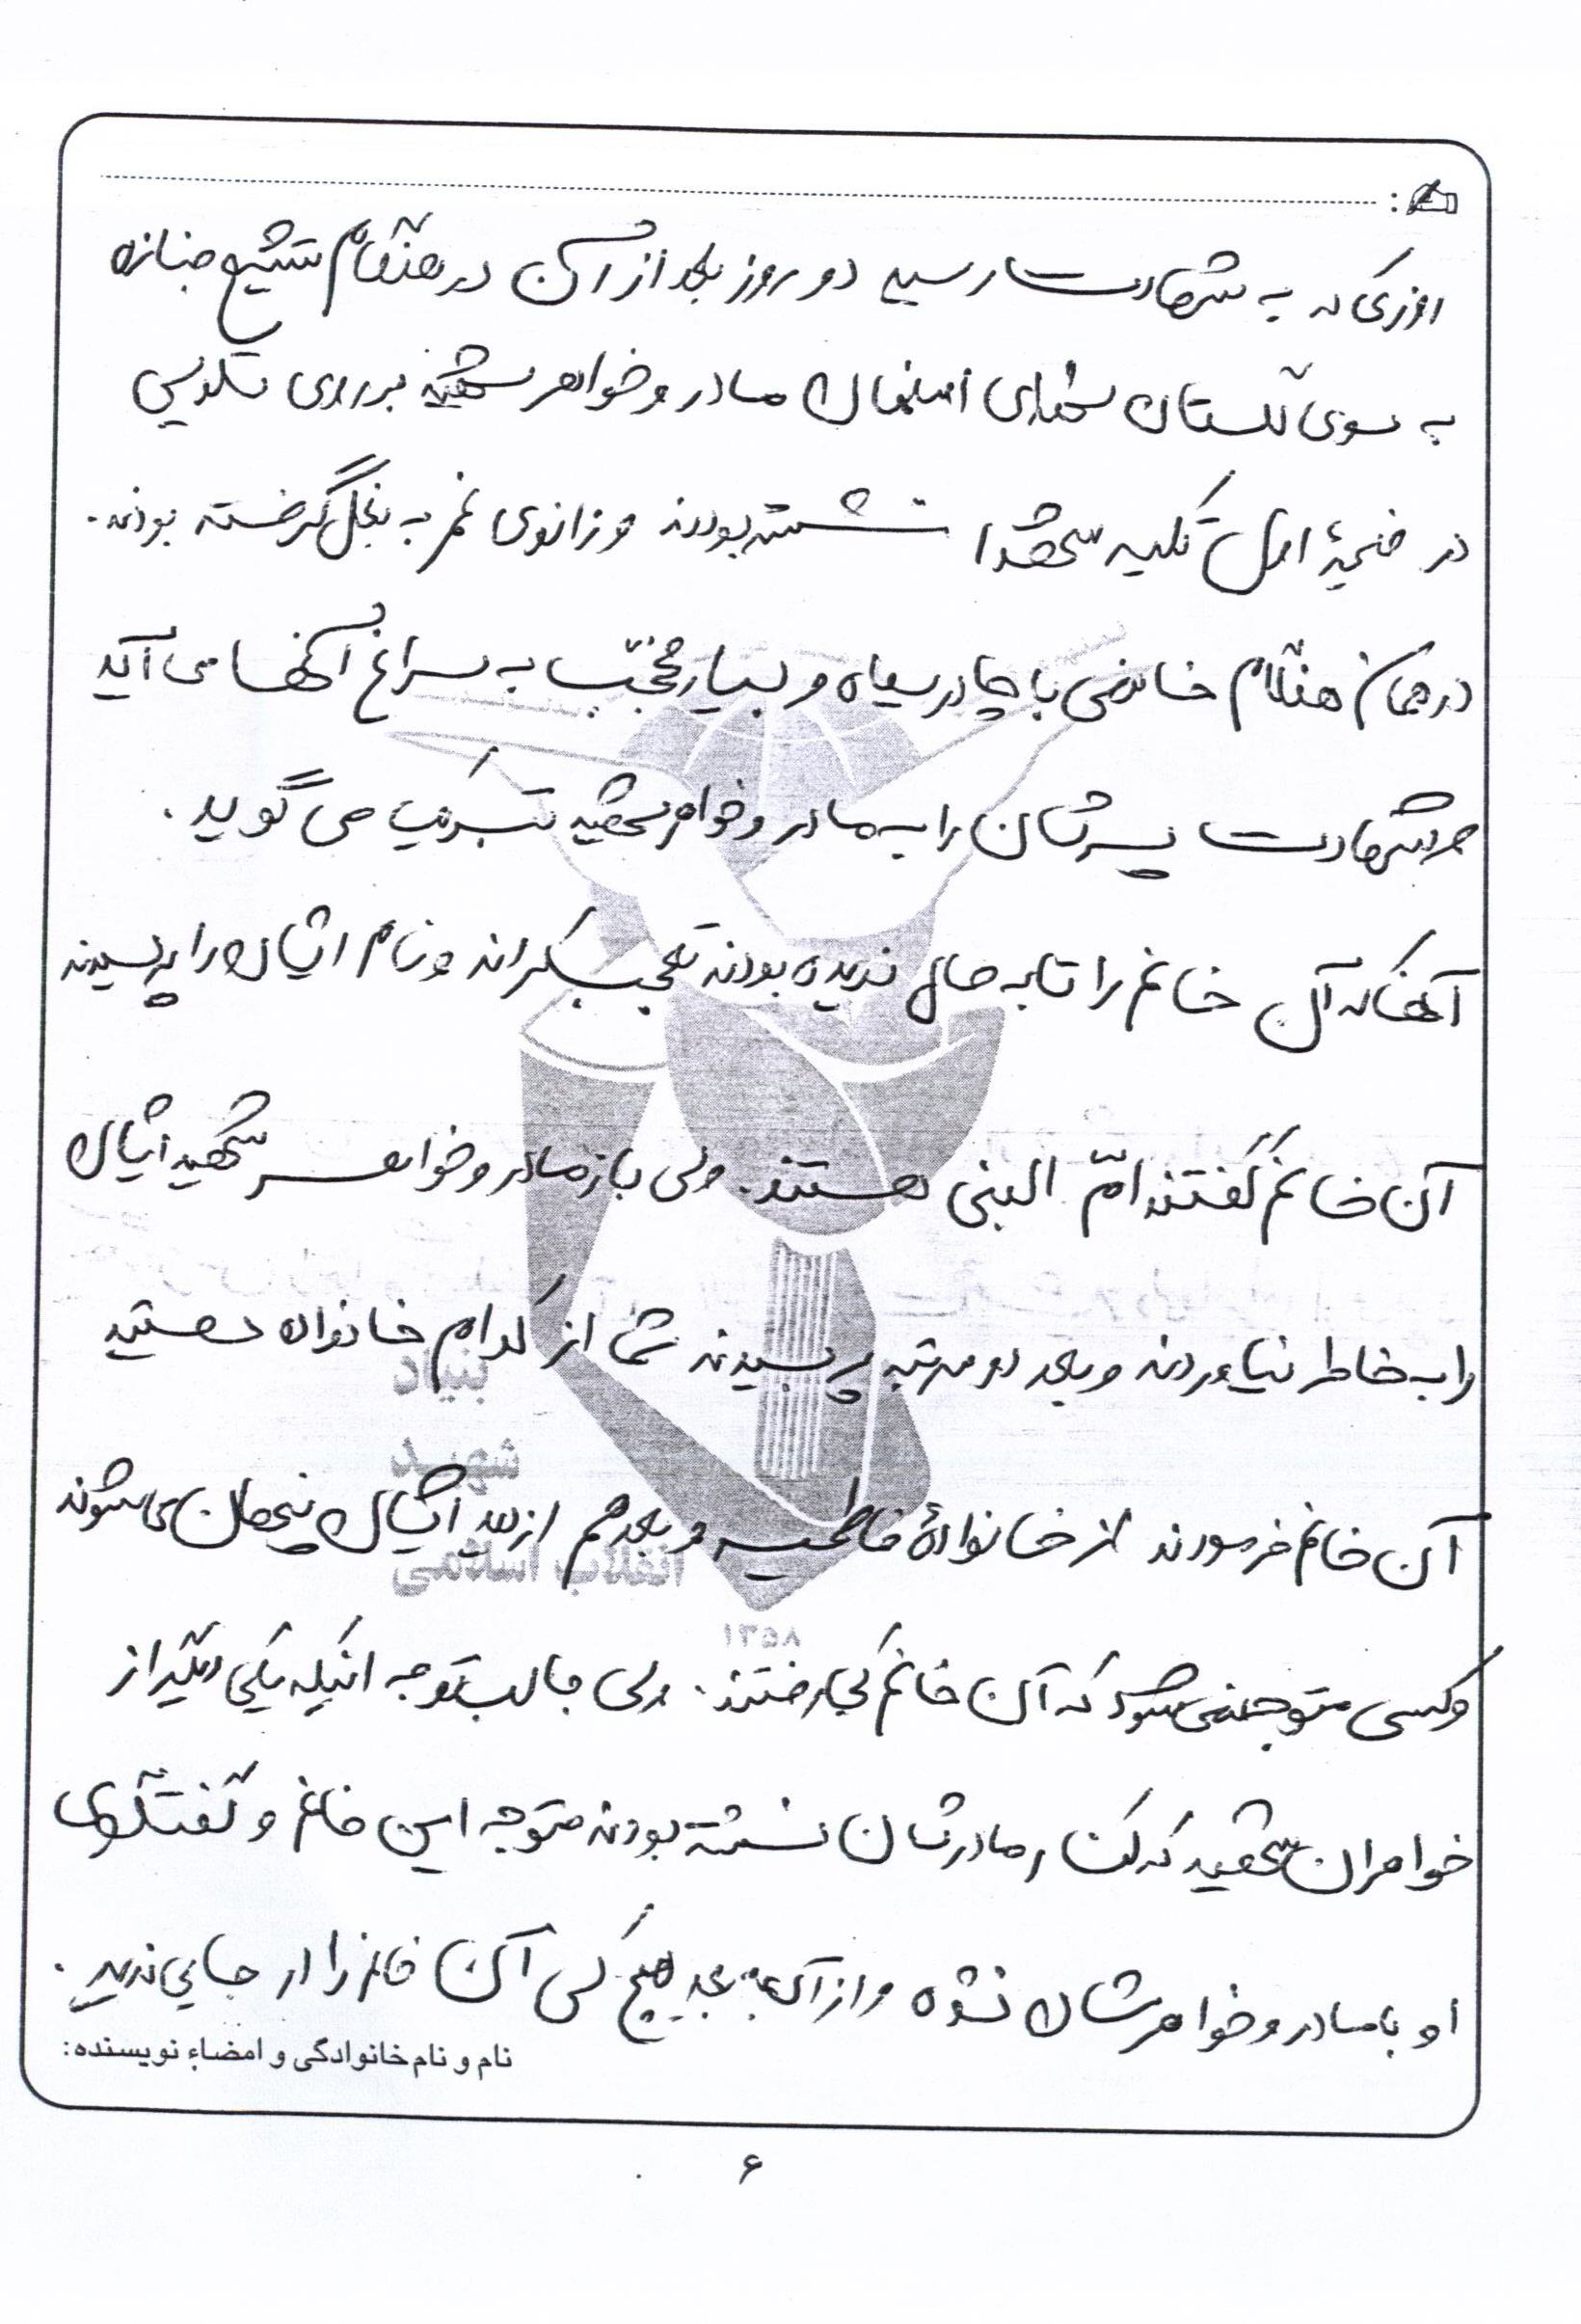 روزی که به شهادت رسید دو روز بعد از آن در هنگام تشییع جنازه
به سوی گلستان شهدای اصفهان مادر و خواهر شهید بر روی سکویی
در خیمهٔ اول تکیه شهدا نشسته بودند و زانوی غم به بغل گرفته بودند.
در همان هنگام خانمی با چادر سیاه و بسیار محجّب به سراغ آنها می آید
و شهادت پسرشان را به مادر و خواهر شهید تبریک می گوید.
آنها که آن خانم را تا به حال ندیده بودند تعجب کردند و نام ایشان را پرسیدند
آن خانم گفتند امّ البنی هستند. ولی باز مادر و خواهر شهید ایشان
را به خاطر نیاوردند و بعد دو مرتبه پرسیدند شما از کدام خانواده هستید
آن خانم فرمودند از خانوادهٔ فاطمیه و بعد هم از دید ایشان پنهان می شوند
و کسی متوجه نمی شود که آن خانم کجا رفتند. ولی جالب توجه اینکه یکی دیگر از
خواهران شهید که کنار مادرشان نشسته بودند متوجه این خانم و گفتگوی
او با مادر و خواهرشان نشده و از آن به بعد هیچ کس آن خانم را در جایی ندید.
نام و نام خانوادگی و امضاء نویسنده:
بنیاد
شهید
انقلاب اسلامی
۱۳۵۸
۶